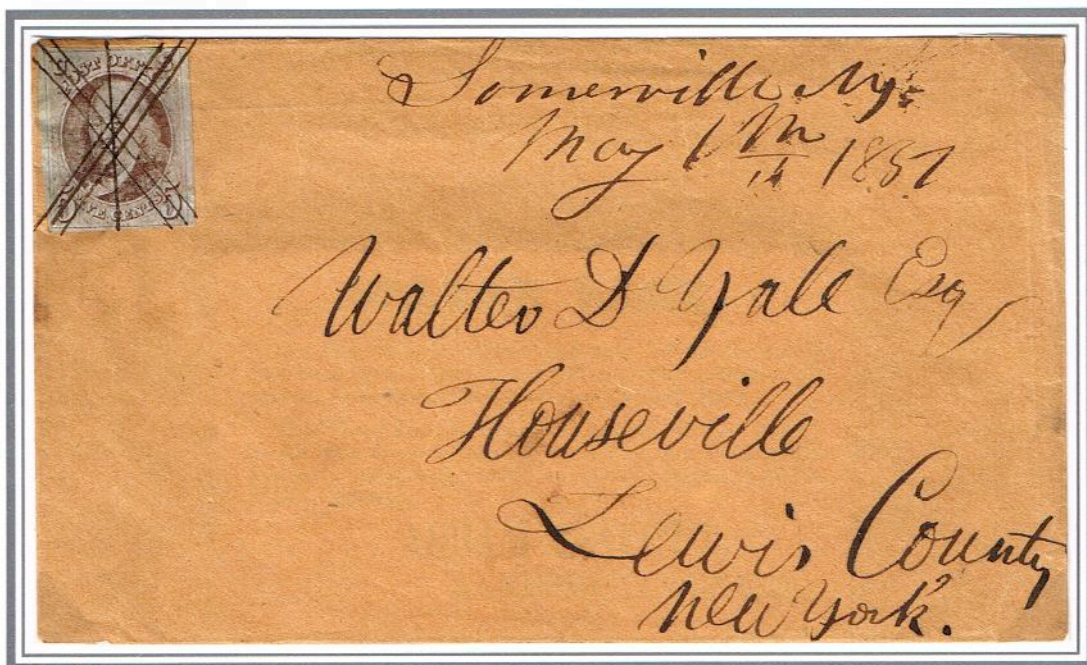 POST OFFICE
FIVE CENTS
5 5
Somerville Ny.
May 1851
Walter D Yale Esq
Houseville
Lewis County
New York.